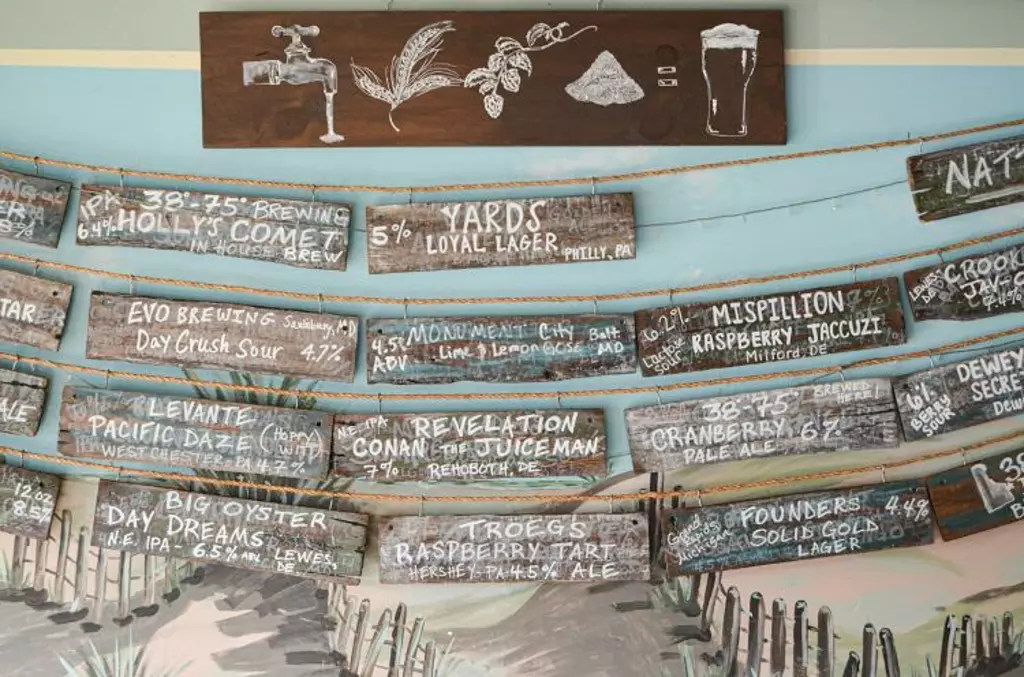 IPA 38°-75° BREWING
6.4% HOLLY'S COMET
IN HOUSE BREW
YARDS
5% LOYAL LAGER
PHILLY, PA
NAT
TAR
EVO BREWING Salisbury, MD
Day Crush Sour 4.7%
4.5% MONUMENT City Balt
ABV Lime & Lemon GOSE MD
6.2% MISPILLION
Lactose SOUR RASPBERRY JACCUZI
Milford DE
CROOK
JAV-
7.4%
ALE
LEVANTE
PACIFIC DAZE (HOPPY WIT)
WEST CHESTER, PA 4.7%
N.E. IPA REVELATION
CONAN THE JUICEMAN
7% REHOBOTH, DE
38°-75° BREWED HERE!
CRANBERRY 6%
PALE ALE
6% DEWEY
BERRY SECRE
SOUR DEW
12 OZ
8.5%
BIG OYSTER
DAY DREAMS
N.E. IPA - 6.5% ABV LEWES, DE
TROEGS
RASPBERRY TART
HERSHEY-PA 4.5% ALE
Grand Rapids Michigan FOUNDERS 4.4%
SOLID GOLD
LAGER
38
B